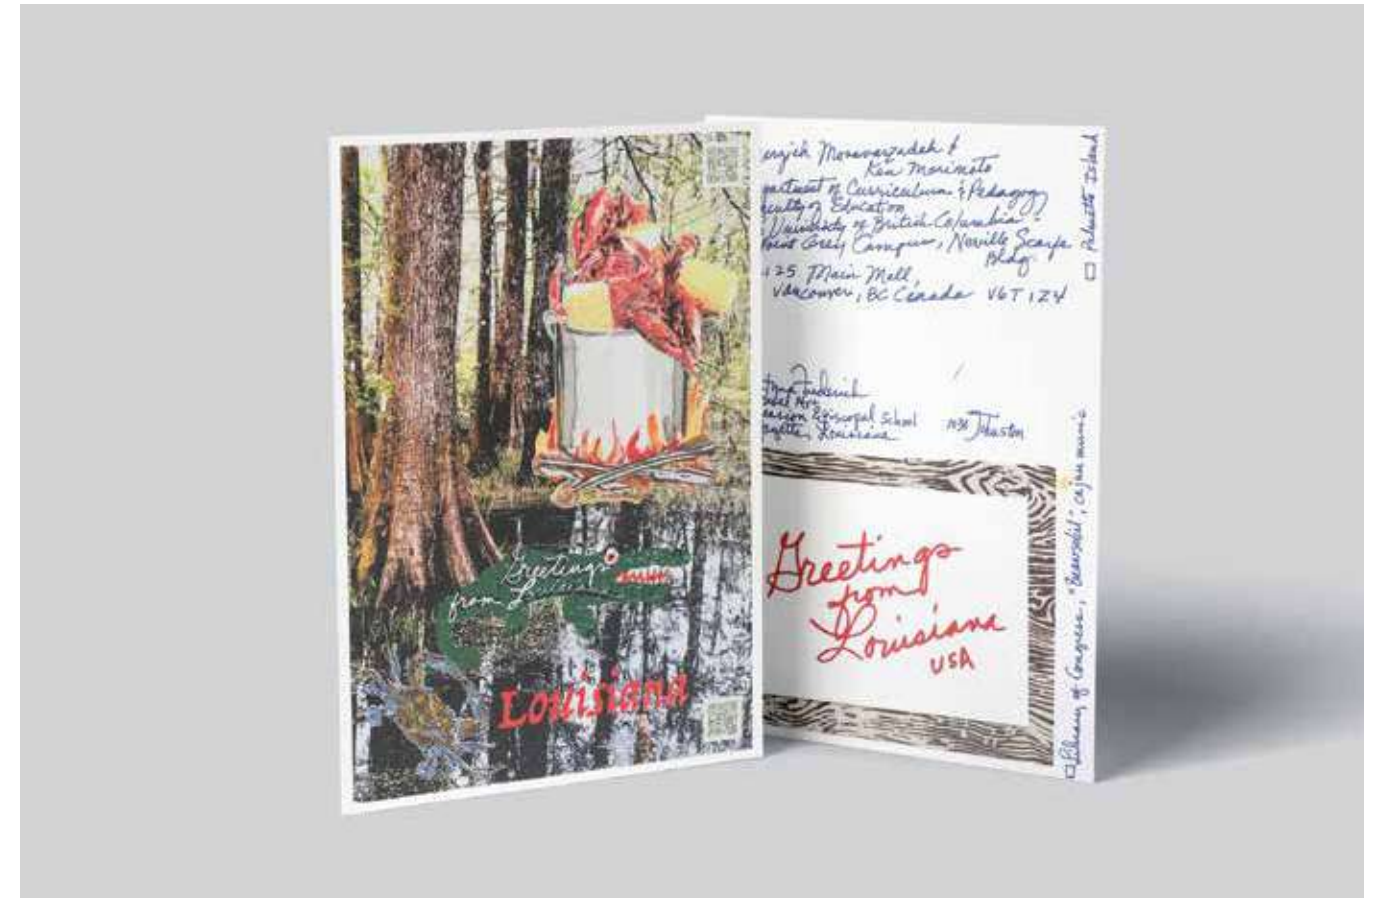 Greetings
from
Louisiana
Moravarzadeh &
Ken Morimoto
of Curriculum & Pedagogy
of Education
University of British Columbia
Point Grey Campus, Neville Scarfe
Bldg.
Main Mall,
Vancouver, BC Canada V6T 1Z4
Frederick
Episcopal School
Louisiana
Johnston
Greetings
from
Louisiana
USA
Island
Library of Congress, "Beausoleil", cajun music